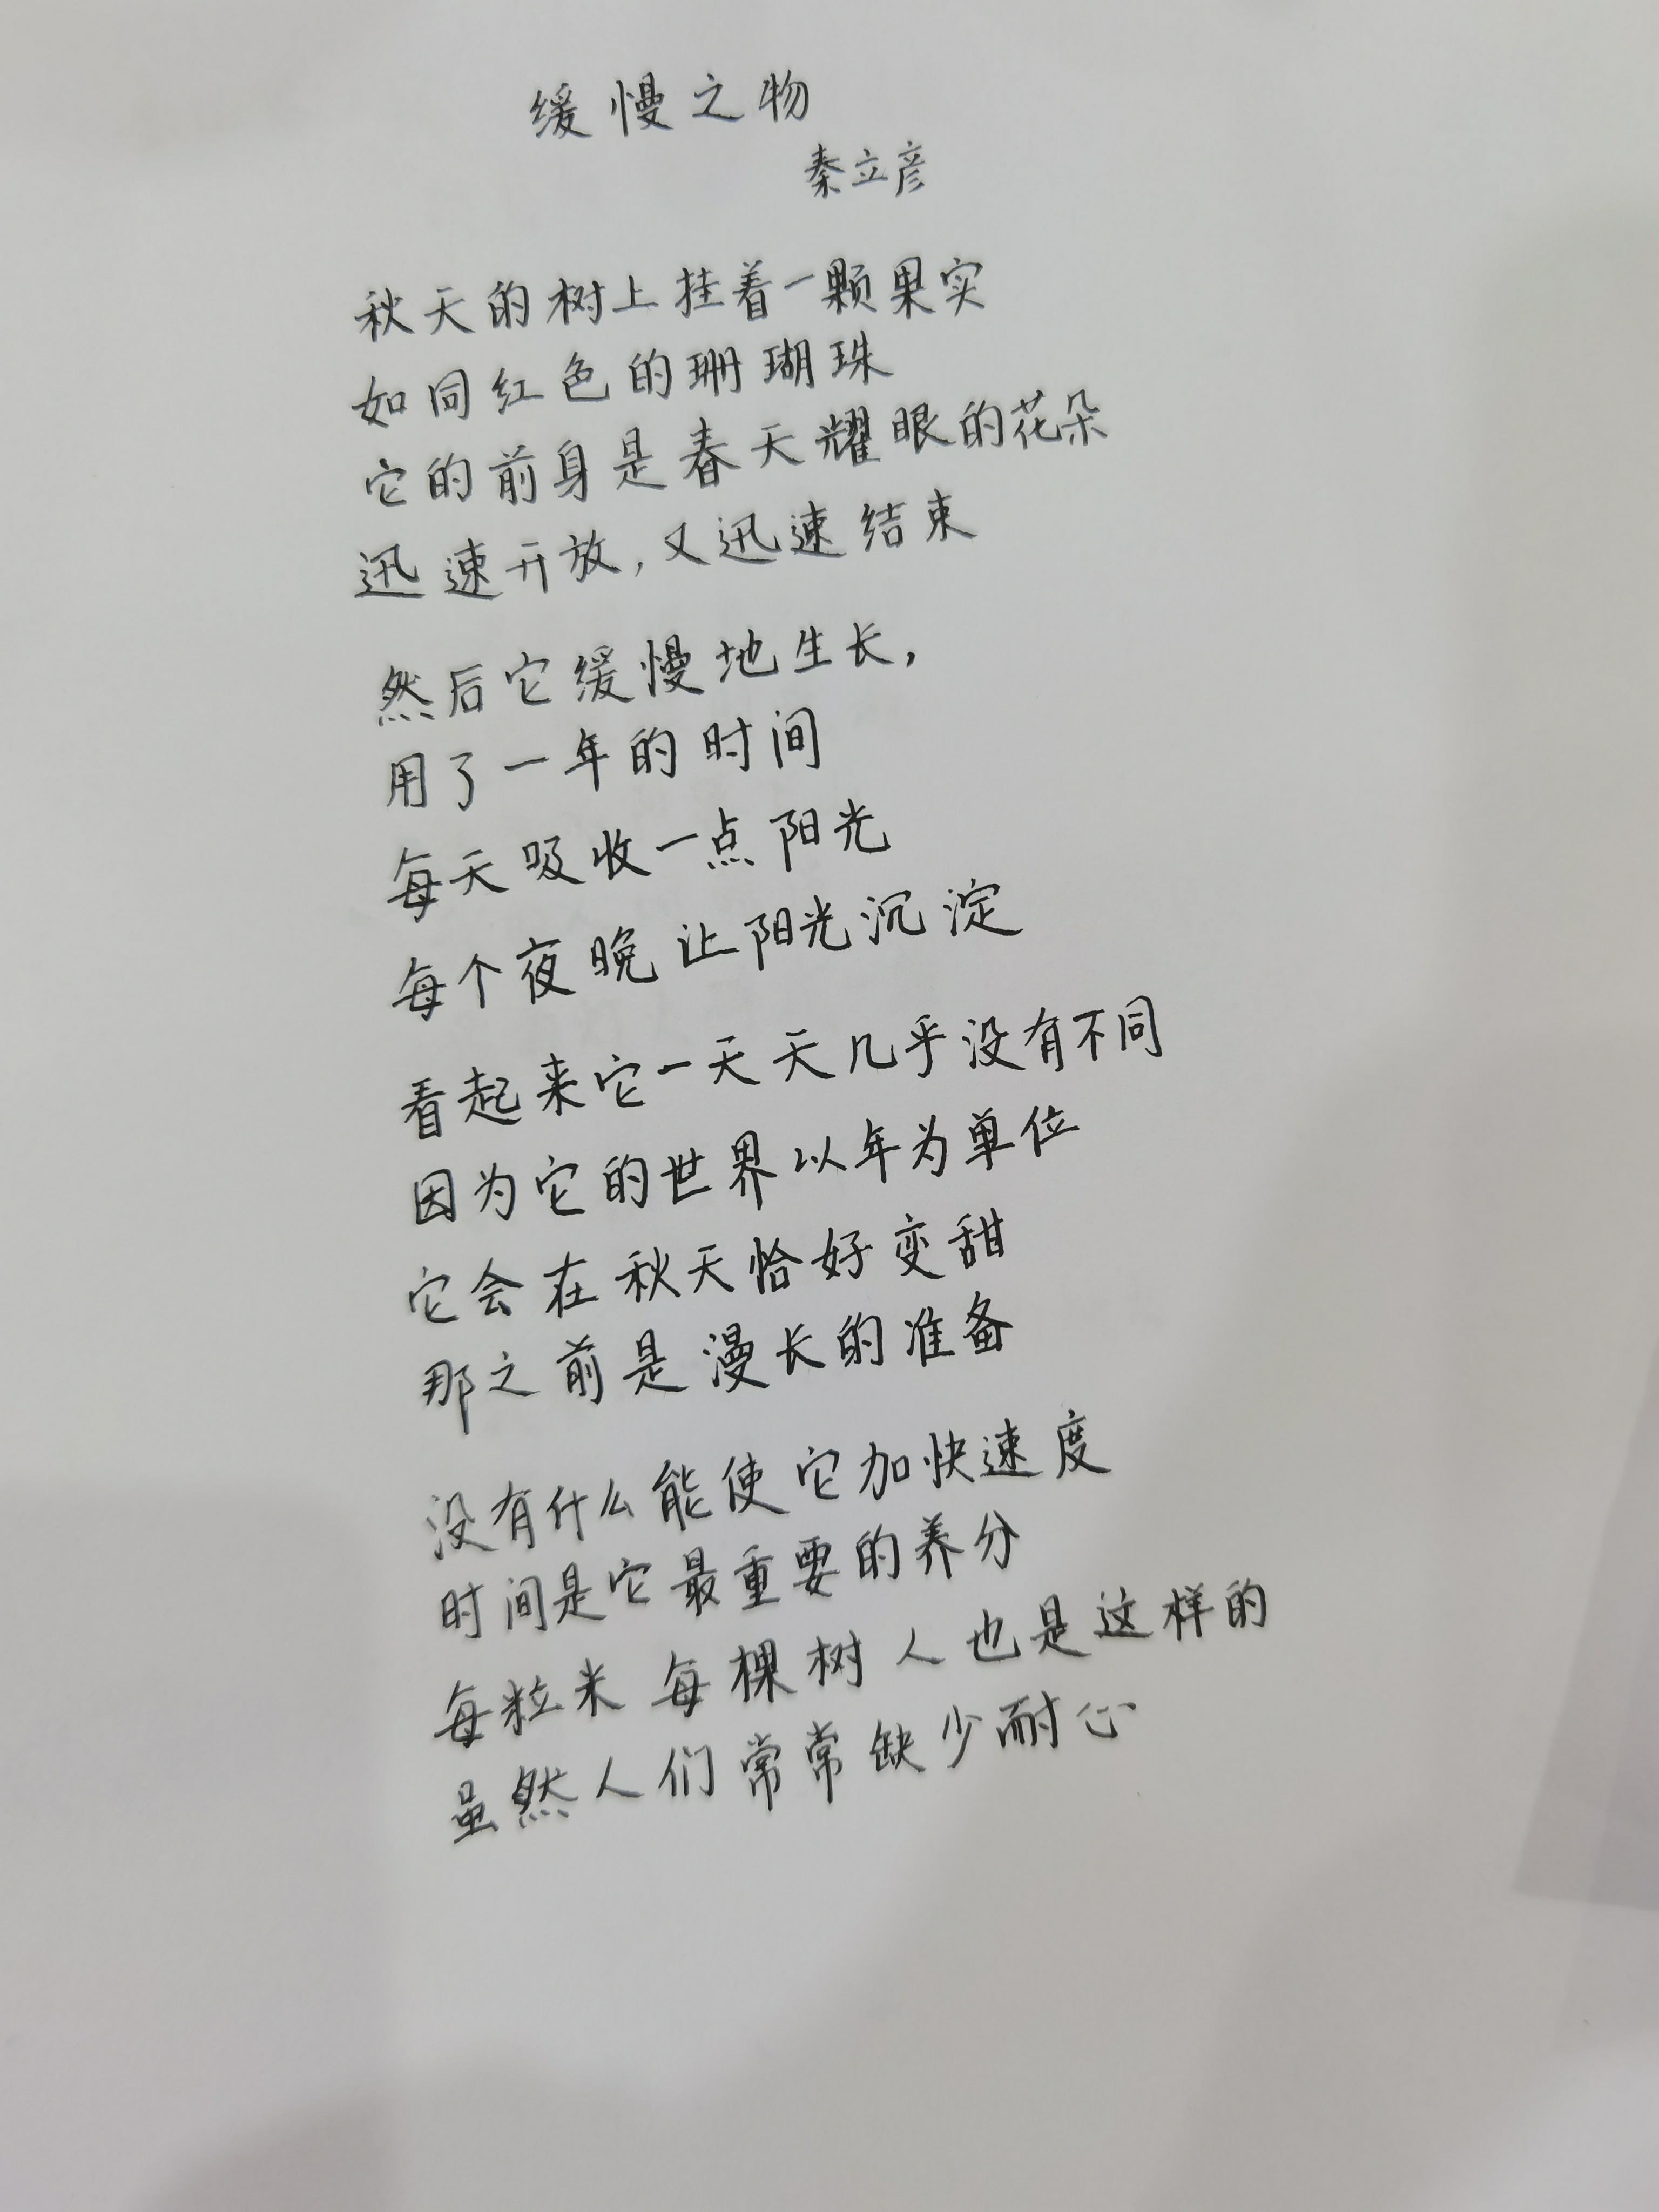 缓慢之物
秦立彦
秋天的树上挂着一颗果实
如同红色的珊瑚珠
它的前身是春天耀眼的花朵
迅速开放,又迅速结束
然后它缓慢地生长,
用了一年的时间
每天吸收一点阳光
每个夜晚让阳光沉淀
看起来它一天天几乎没有不同
因为它的世界以年为单位
它会在秋天恰好变甜
那之前是漫长的准备
没有什么能使它加快速度
时间是它最重要的养分
每粒米 每棵树 人也是这样的
虽然人们常常缺少耐心